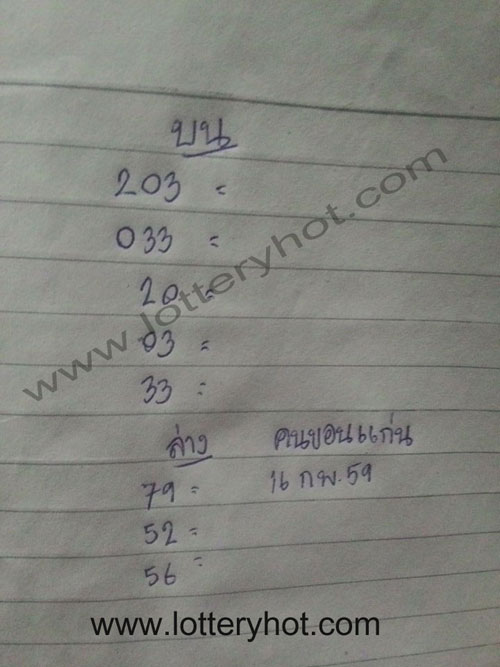 บน
203 =
033 =
20 =
03 =
33 =
ล่าง คนขอนแก่น
79 = 16 กพ. 59
52 =
56 =
www.lotteryhot.com
www.lotteryhot.com